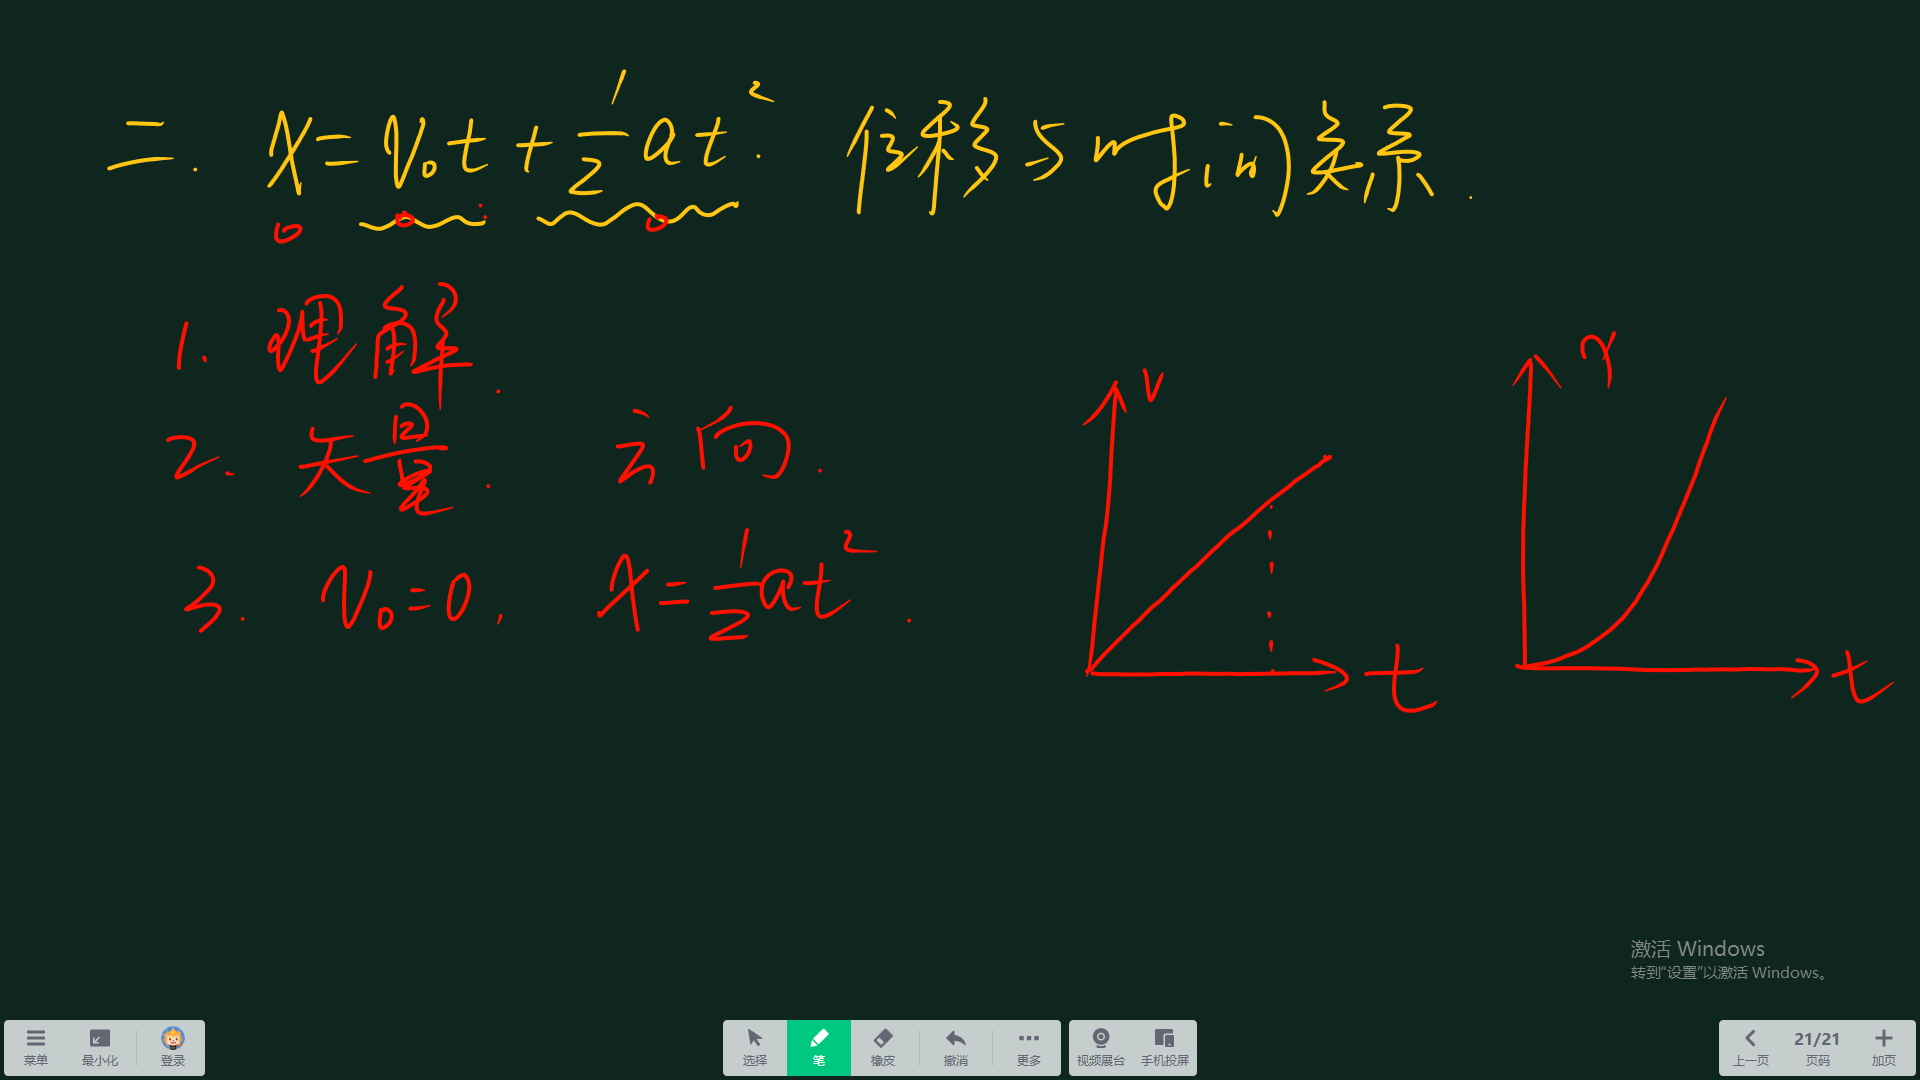 二. x=v₀t+½at². 位移与时间关系.
1. 理解.
2. 矢量. 方向.
3. v₀=0, x=½at².
v
t
x
t
激活 Windows
转到"设置"以激活 Windows。
菜单 最小化 登录 选择 笔 橡皮 撤消 更多 视频展台 手机投屏 上一页 21/21 页码 加页